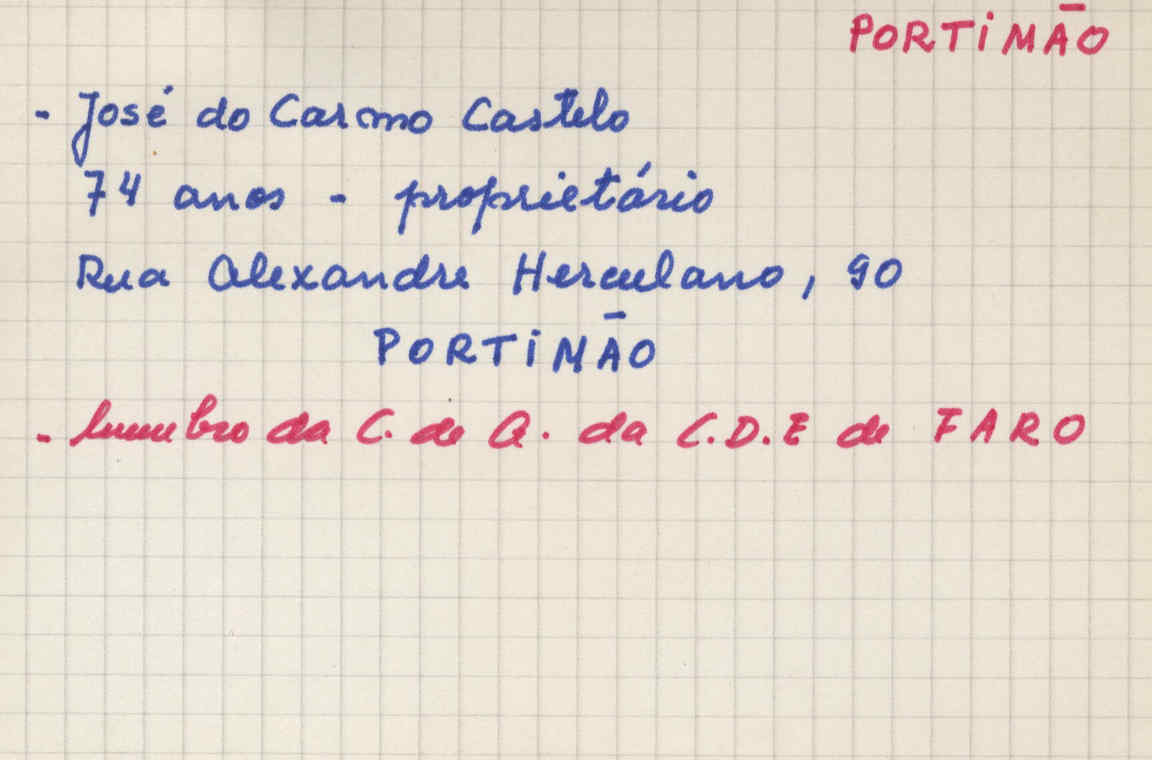 PORTIMÃO
- José do Carmo Castelo
74 anos - proprietário
Rua Alexandre Herculano, 90
PORTIMÃO
- Membro da C. de A. da C.D.E de FARO